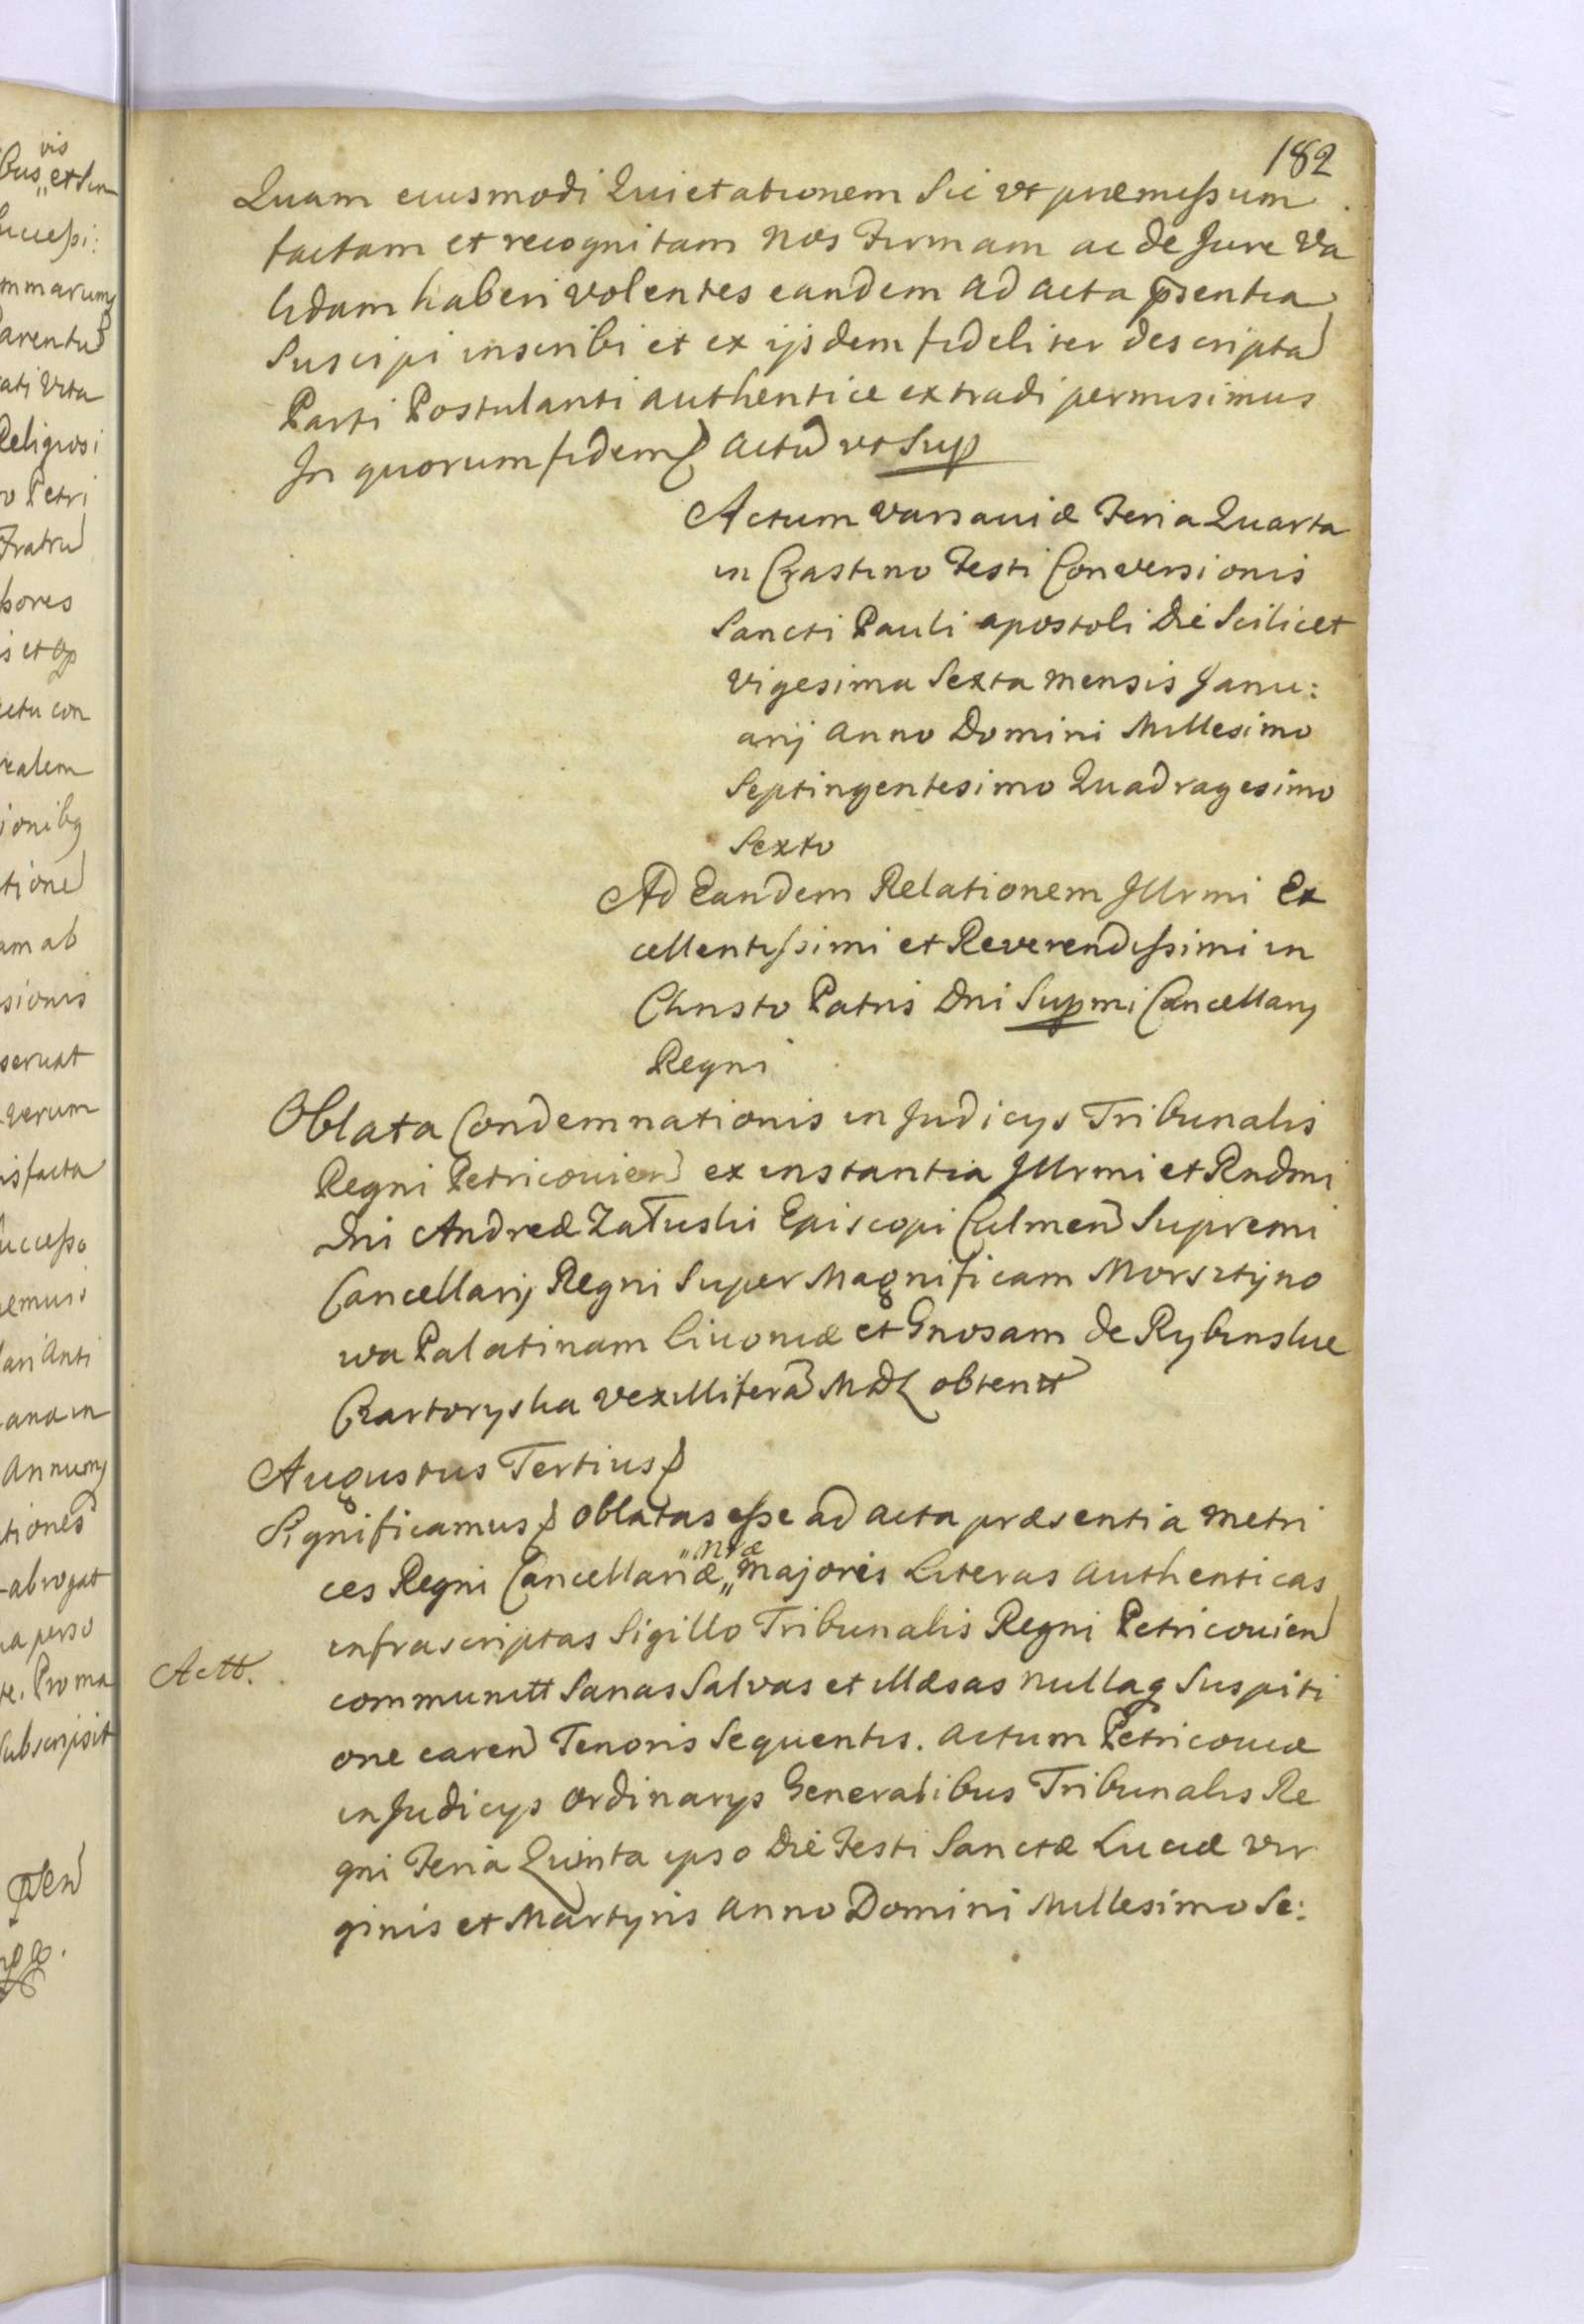 182
Quam eiusmodi Quietationem Sic vt præmissum
factam et recognitam Nos Firmam ac de Jure Va
lidam haberi volentes eandem ad acta p̄sentia
Suscipi inscribi et ex ijsdem fideliter descripta
Parti Postulanti authentice extradi permisimus
In quorum fidem actū vt Sup
Actum Varsaviæ Feria Quarta
in Crastino Festi Conversionis
Sancti Pauli apostoli Die Scilicet
Vigesima Sexta mensis Janu:
arij anno Domini Millesimo
Septingentesimo Quadragesimo
Sexto
Ad Eandem Relationem Jllrmi Ex
cellentissimi et Reverendissimi in
Christo Patris Dni Supmi Cancellarij
Regni
Oblata Condemnationis in Judicijs Tribunalis
Regni Petricovien ex instantia Jllrmi et Rndmi
Dni Andreæ Załuski Episcopi Culmen Supremi
Cancellarij Regni Super Magnificam Morsztyno
wa Palatinam Livoniæ et Gnosam de Rybinskie
Czartoryska Vexillifera MDL obtent
Augustus Tertius
Significamus oblatas esse ad acta præsentia metri
ces Regni Cancellariæ „ntæ„ Majoris Literas authenticas
infrascriptas Sigillo Tribunalis Regni Petricovien
Actt.
communitt Sanas Salvas et illæsas nullaq Suspiti
one caren Tenoris Sequentis. actum Petricoviæ
in Judicijs ordinarijs Generalibus Tribunalis Re
gni Feria Quinta ipso Die Festi Sanctæ Luciæ Vir
ginis et Martyris anno Domini Millesimo Se: